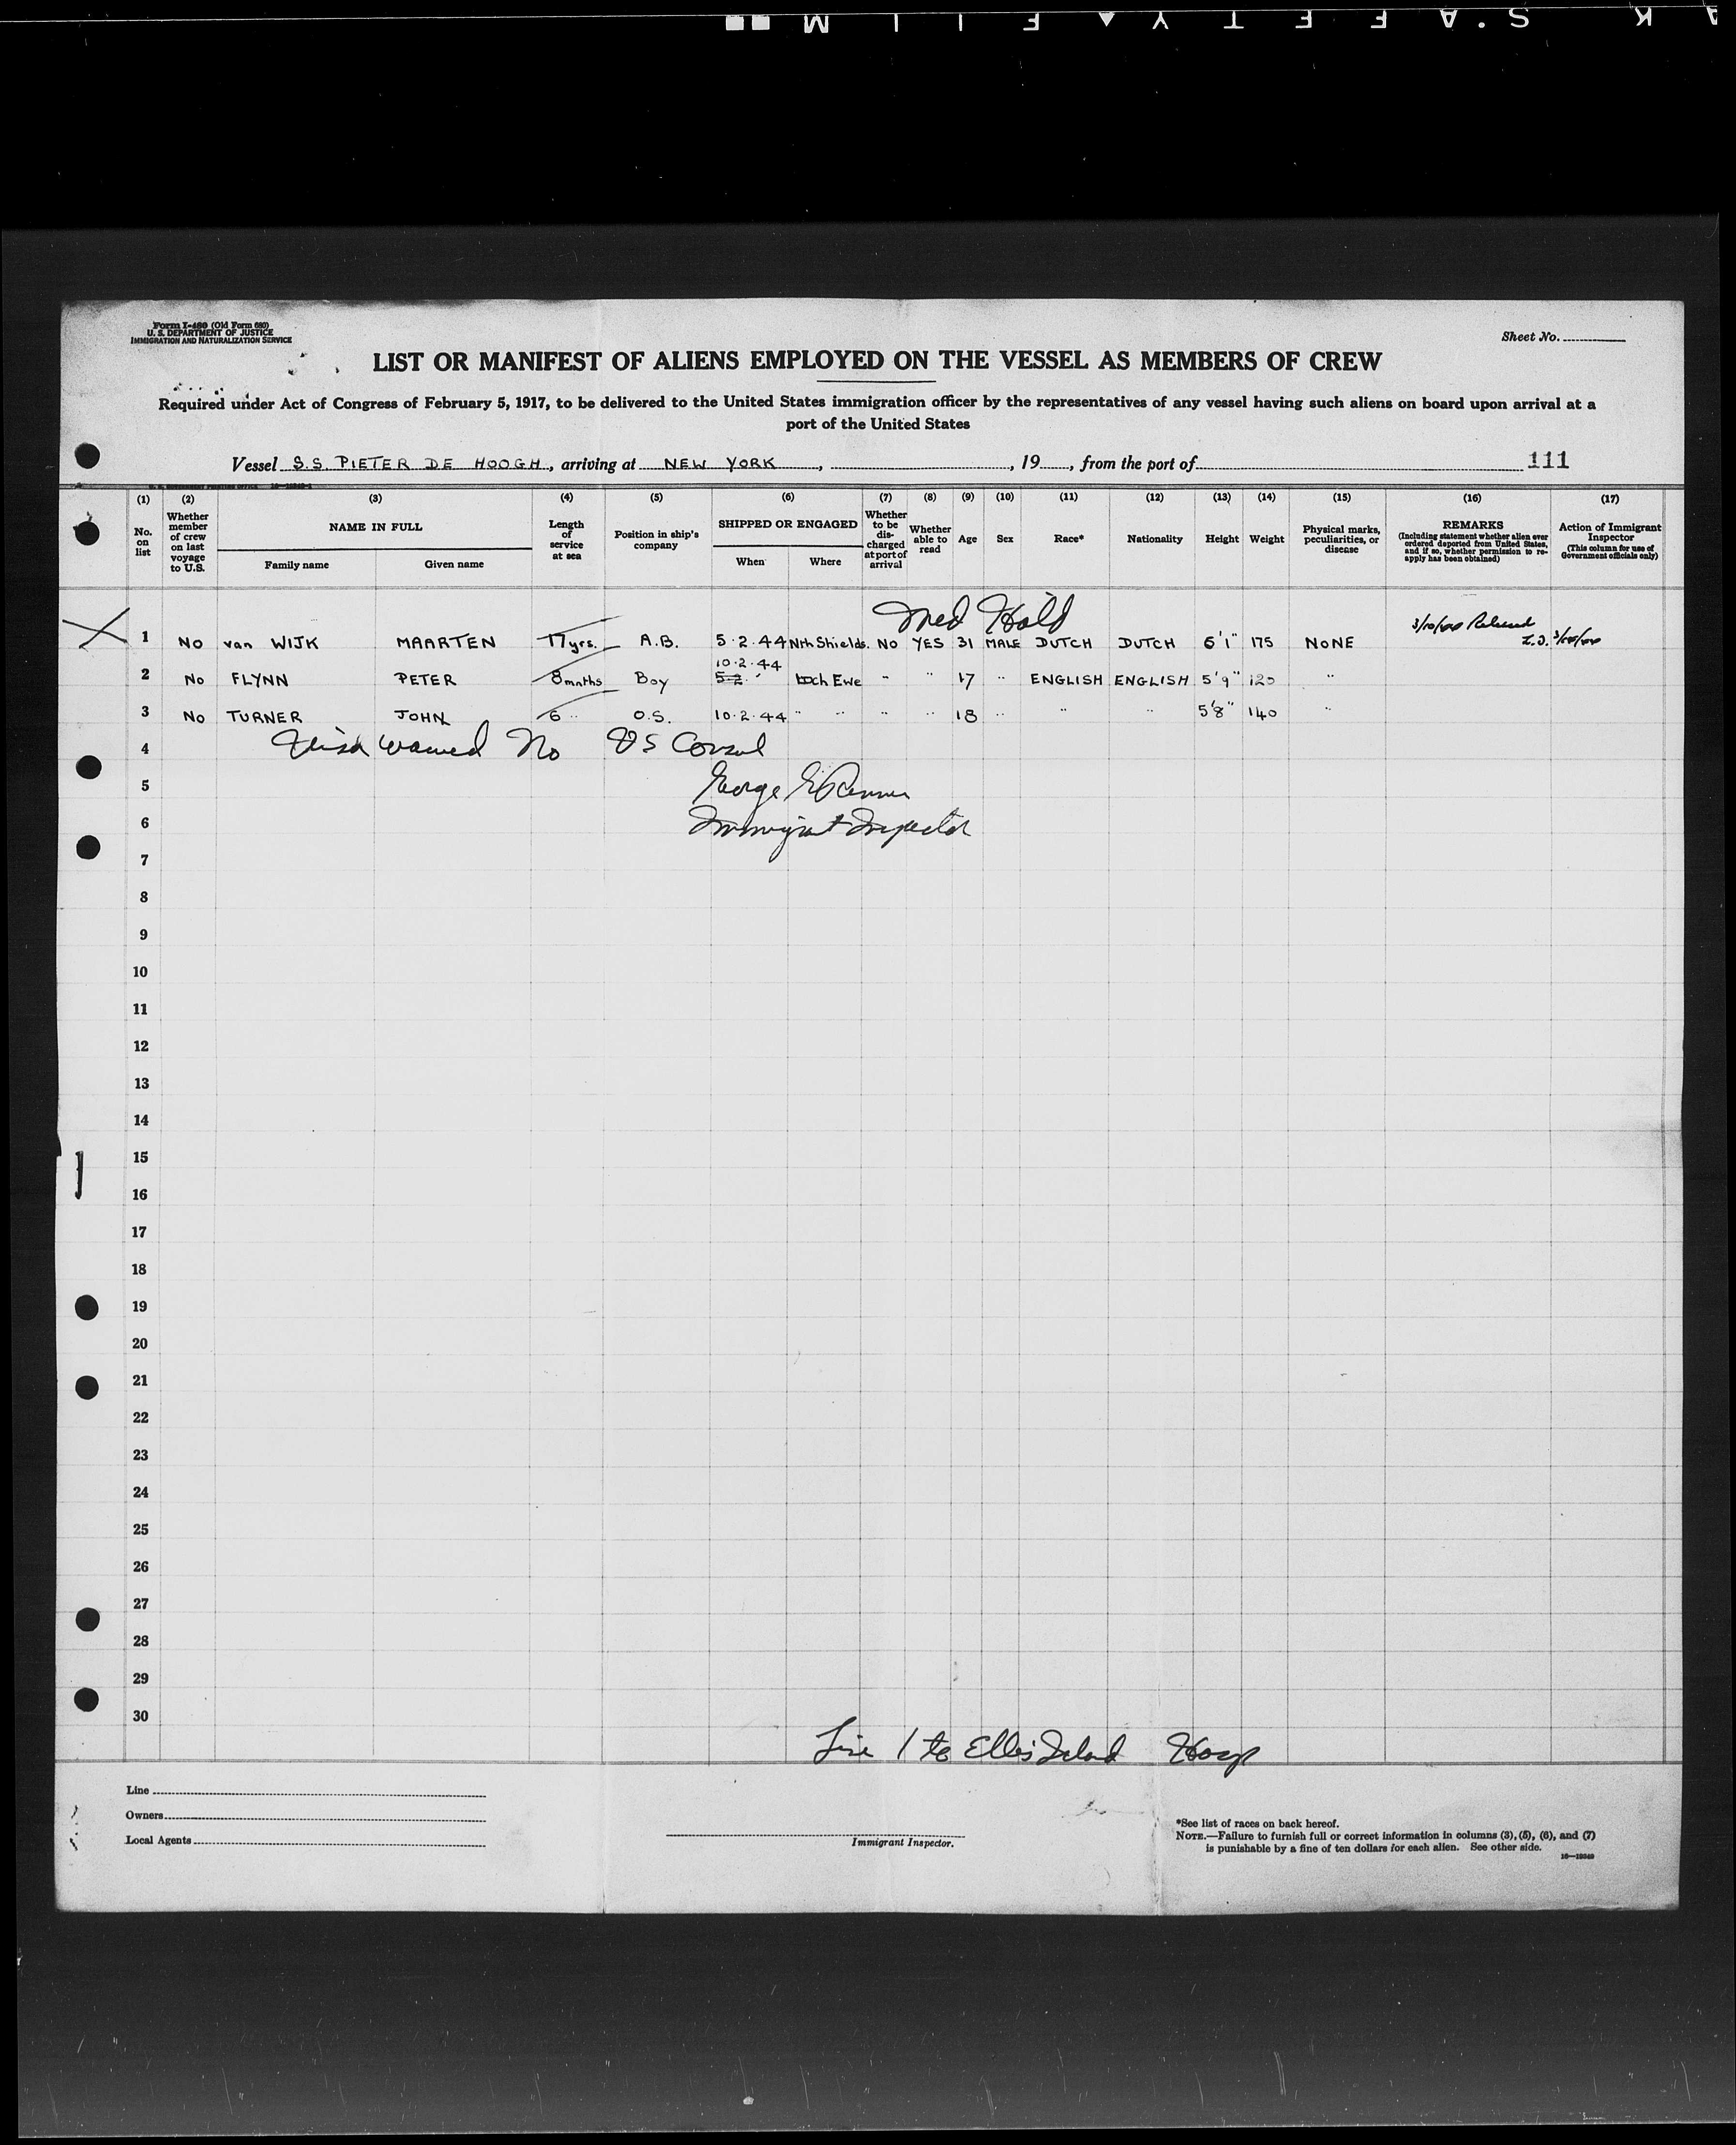 SAFETY FILM
Form I-480 (Old Form 680)
U. S. DEPARTMENT OF JUSTICE
IMMIGRATION AND NATURALIZATION SERVICE
Sheet No.
LIST OR MANIFEST OF ALIENS EMPLOYED ON THE VESSEL AS MEMBERS OF CREW
Required under Act of Congress of February 5, 1917, to be delivered to the United States immigration officer by the representatives of any vessel having such aliens on board upon arrival at a
port of the United States
Vessel S.S. PIETER DE HOOGH, arriving at NEW YORK, , 19 , from the port of 111
(1) (2) (3) (4) (5) (6) (7) (8) (9) (10) (11) (12) (13) (14) (15) (16) (17)
No. on list
Whether member of crew on last voyage to U.S.
NAME IN FULL
Family name Given name
Length of service at sea
Position in ship's company
SHIPPED OR ENGAGED
When Where
Whether to be discharged at port of arrival
Whether able to read
Age
Sex
Race*
Nationality
Height
Weight
Physical marks, peculiarities, or disease
REMARKS
(Including statement whether alien ever ordered deported from United States, and if so, whether permission to re-apply has been obtained)
Action of Immigrant Inspector
(This column for use of Government officials only)
Med Hold
3/10/44 Released
1 NO van WIJK MAARTEN 17 yrs. A.B. 5.2.44 Nth Shields. NO YES 31 MALE DUTCH DUTCH 6'1" 175 NONE 3/10/44
10.2.44
2 No FLYNN PETER 8 mnths Boy 5-2 " Loch Ewe " " 17 " ENGLISH ENGLISH 5'9" 120 "
3 No TURNER JOHN 6 " O.S. 10.2.44 " " " " 18 " " " 5'8" 140 "
4 Visa waived No US Consul
5 George
6 Immigrant Inspector
7
8
9
10
11
12
13
14
15
16
17
18
19
20
21
22
23
24
25
26
27
28
29
30
Line 1 to Ellis Island
Line
Owners
Local Agents
Immigrant Inspector.
*See list of races on back hereof.
NOTE.—Failure to furnish full or correct information in columns (3), (5), (6), and (7)
is punishable by a fine of ten dollars for each alien. See other side.